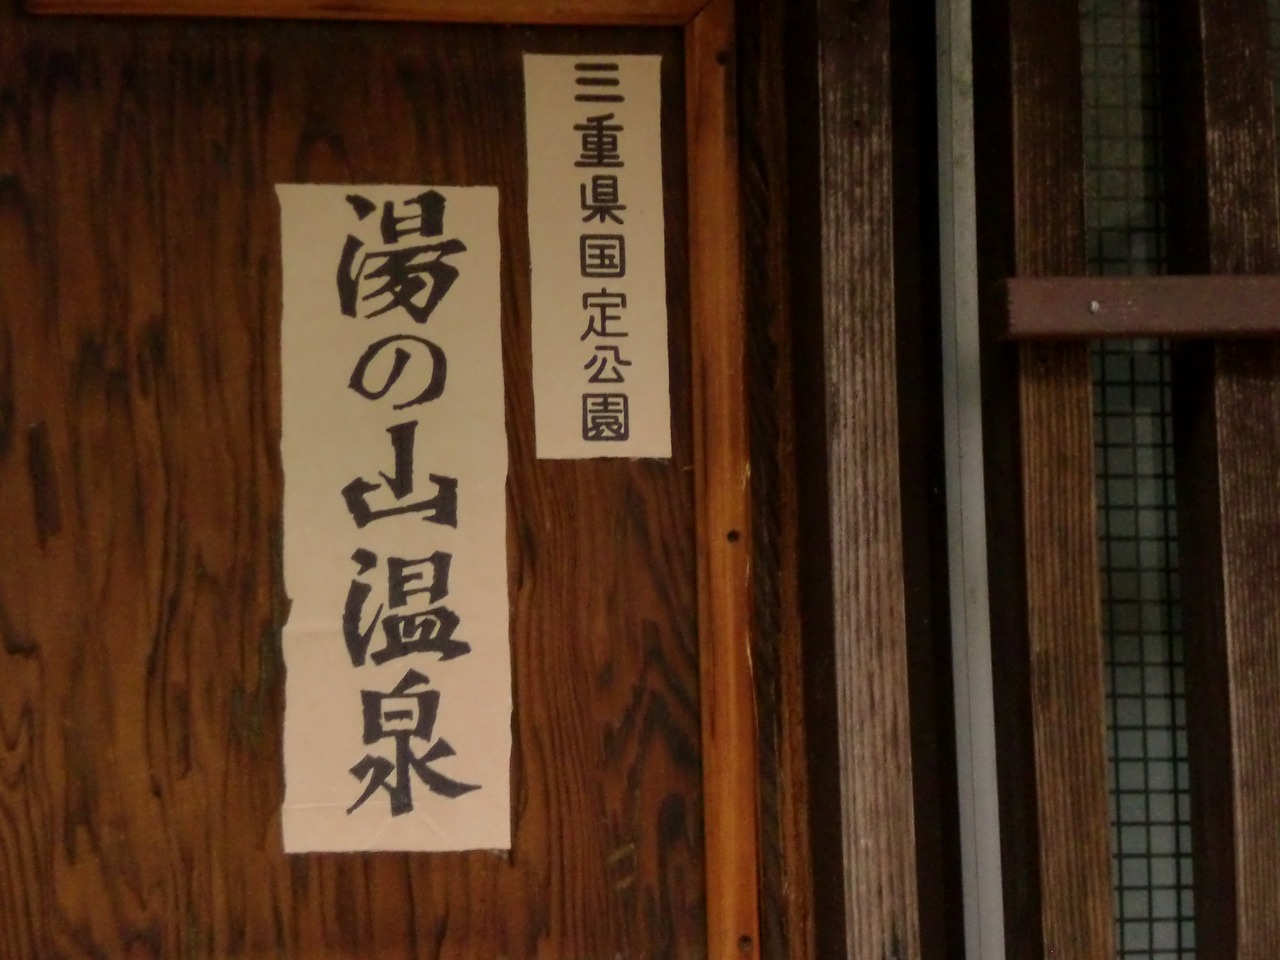 三重県国定公園
湯の山温泉